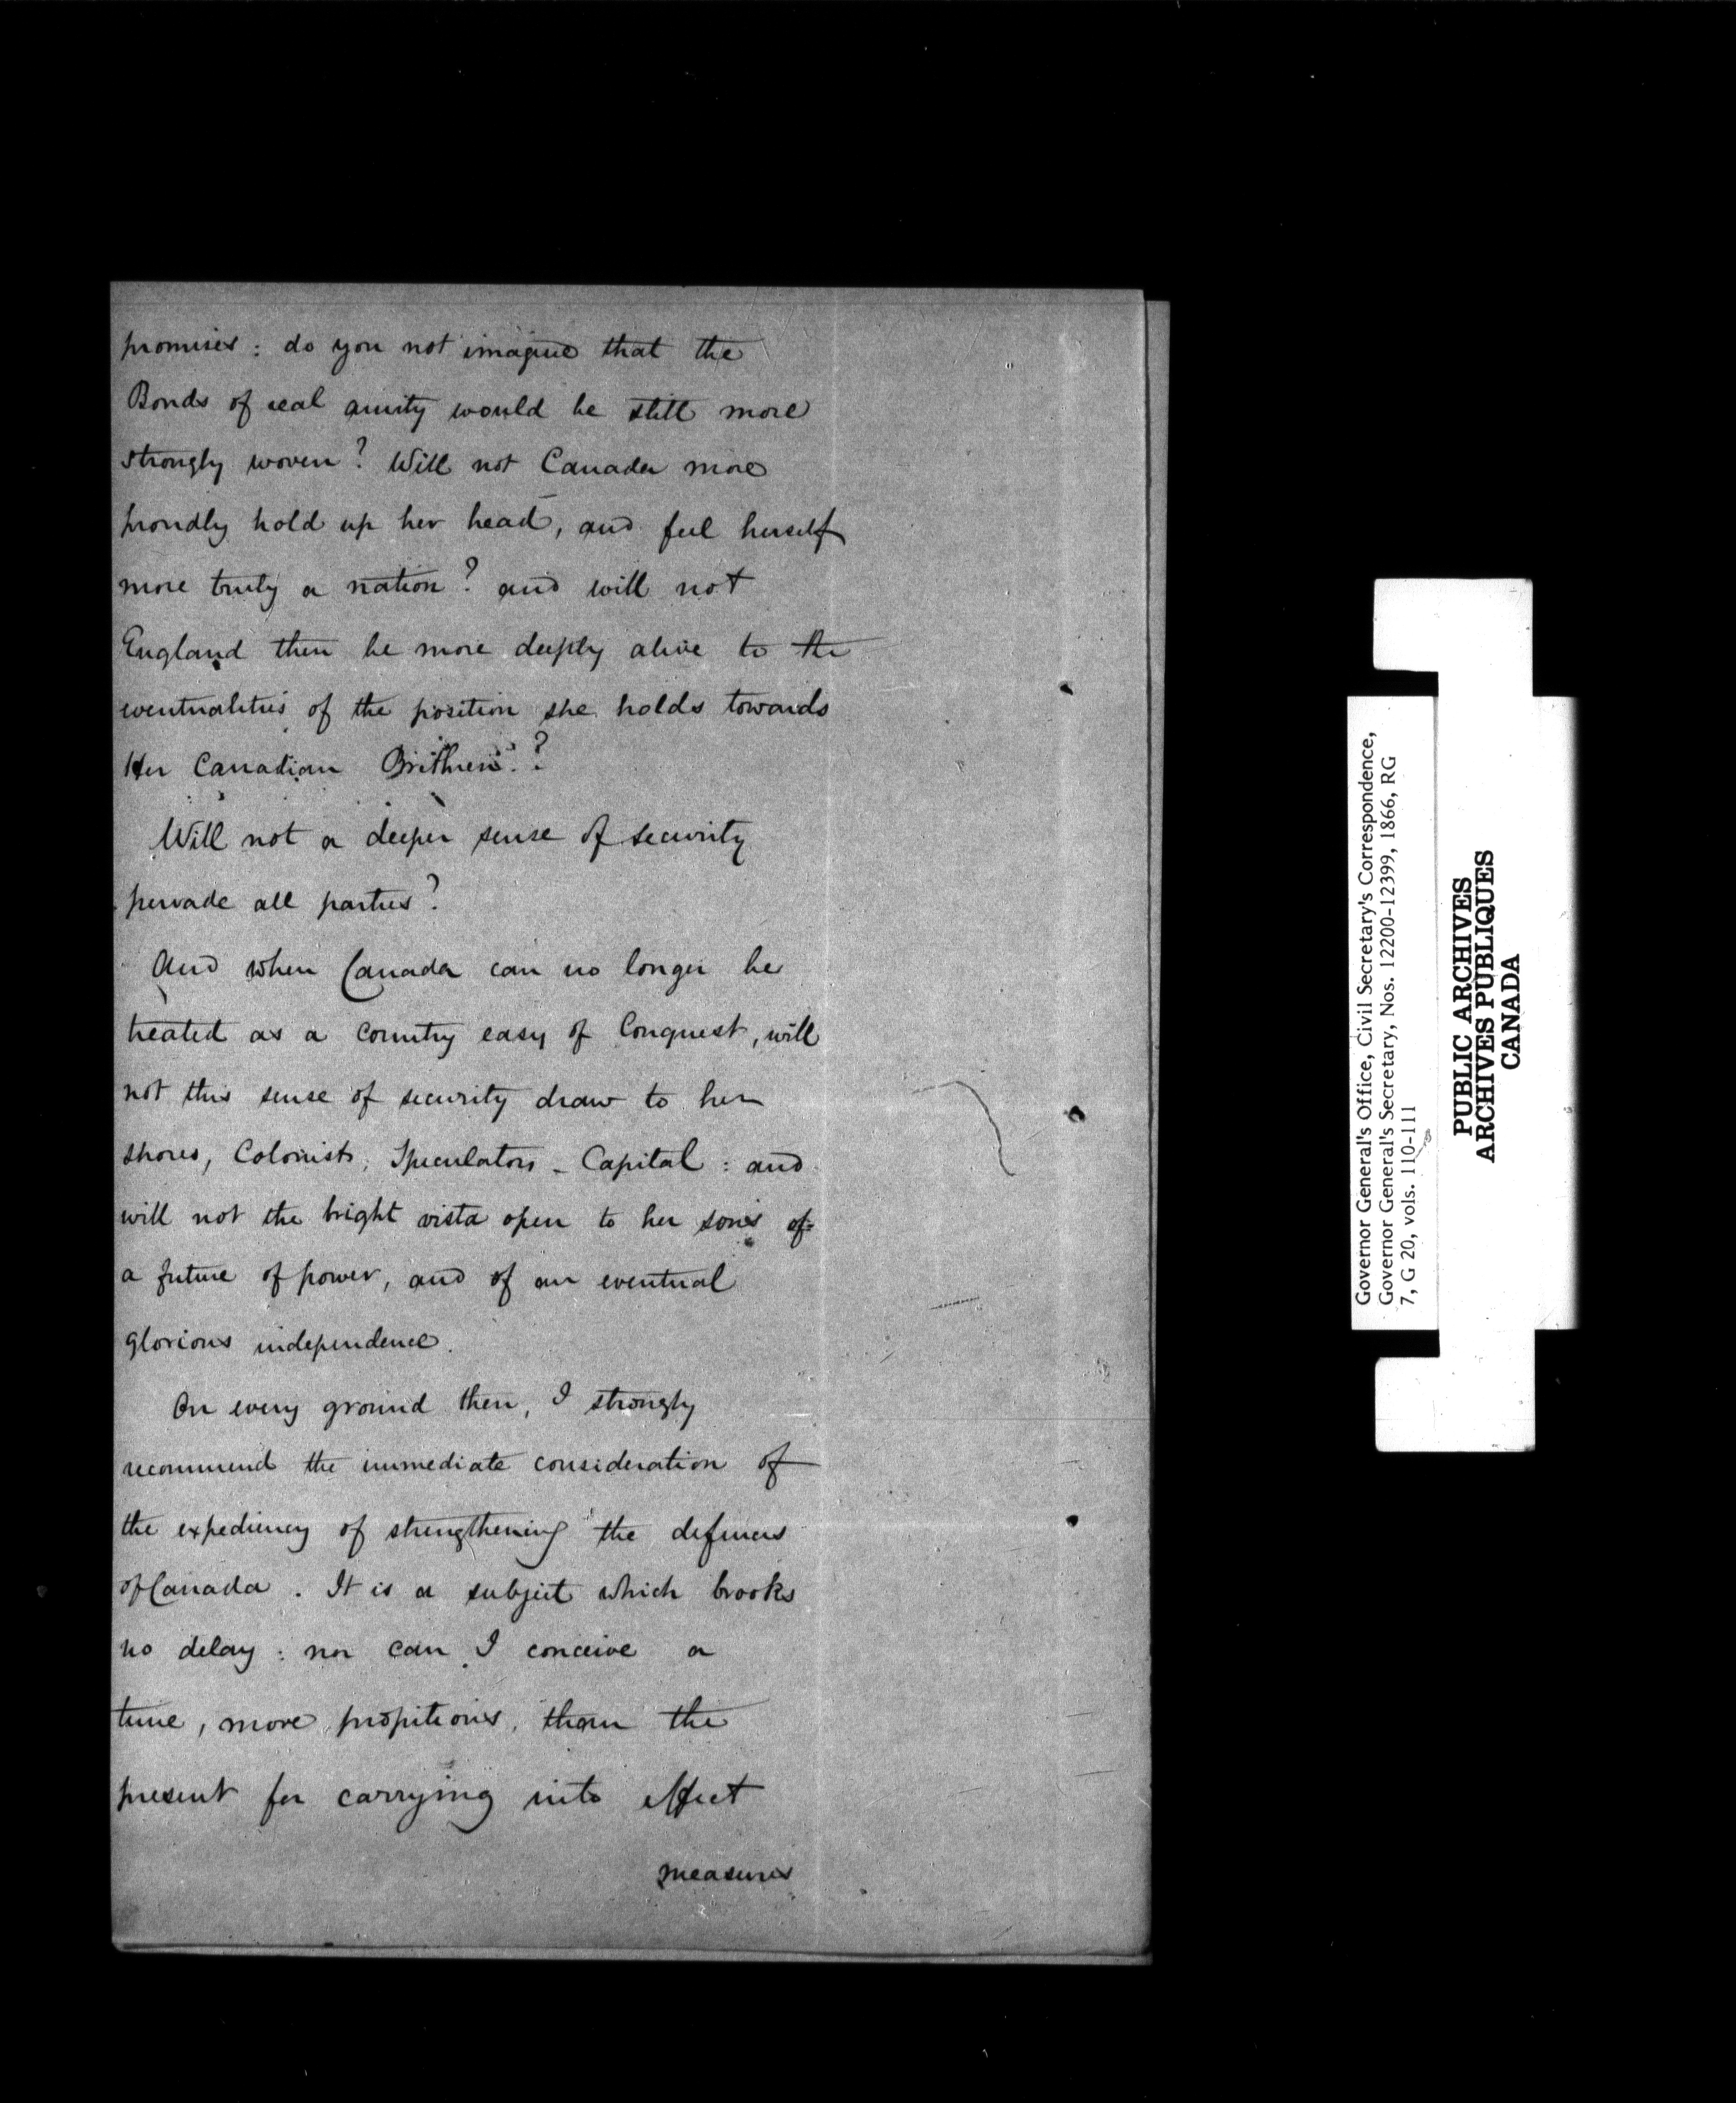 promises: do you not imagine that the
Bonds of real amity would be still more
strongly woven? Will not Canada more
proudly hold up her head, and feel herself
more truly a nation? and will not
England then be more deeply alive to the
eventualities of the position she holds towards
Her Canadian Brithren?
Will not a deeper sense of security
pervade all parties?
And when Canada can no longer be
treated as a country easy of Conquest, will
not this sense of security draw to her
shores, Colonists, Speculators - Capital: and
will not the bright vista open to her sons of
a future of power, and of an eventual
glorious independence.
On every ground then, I strongly
recommend the immediate consideration of
the expediency of strengthening the defences
of Canada. It is a subject which brooks
no delay: nor can I conceive a
time, more propitious, than the
present for carrying into effect
measures
Governor General's Office, Civil Secretary's Correspondence,
Governor General's Secretary, Nos. 12200-12399, 1866, RG
7, G 20, vols. 110-111
PUBLIC ARCHIVES
ARCHIVES PUBLIQUES
CANADA